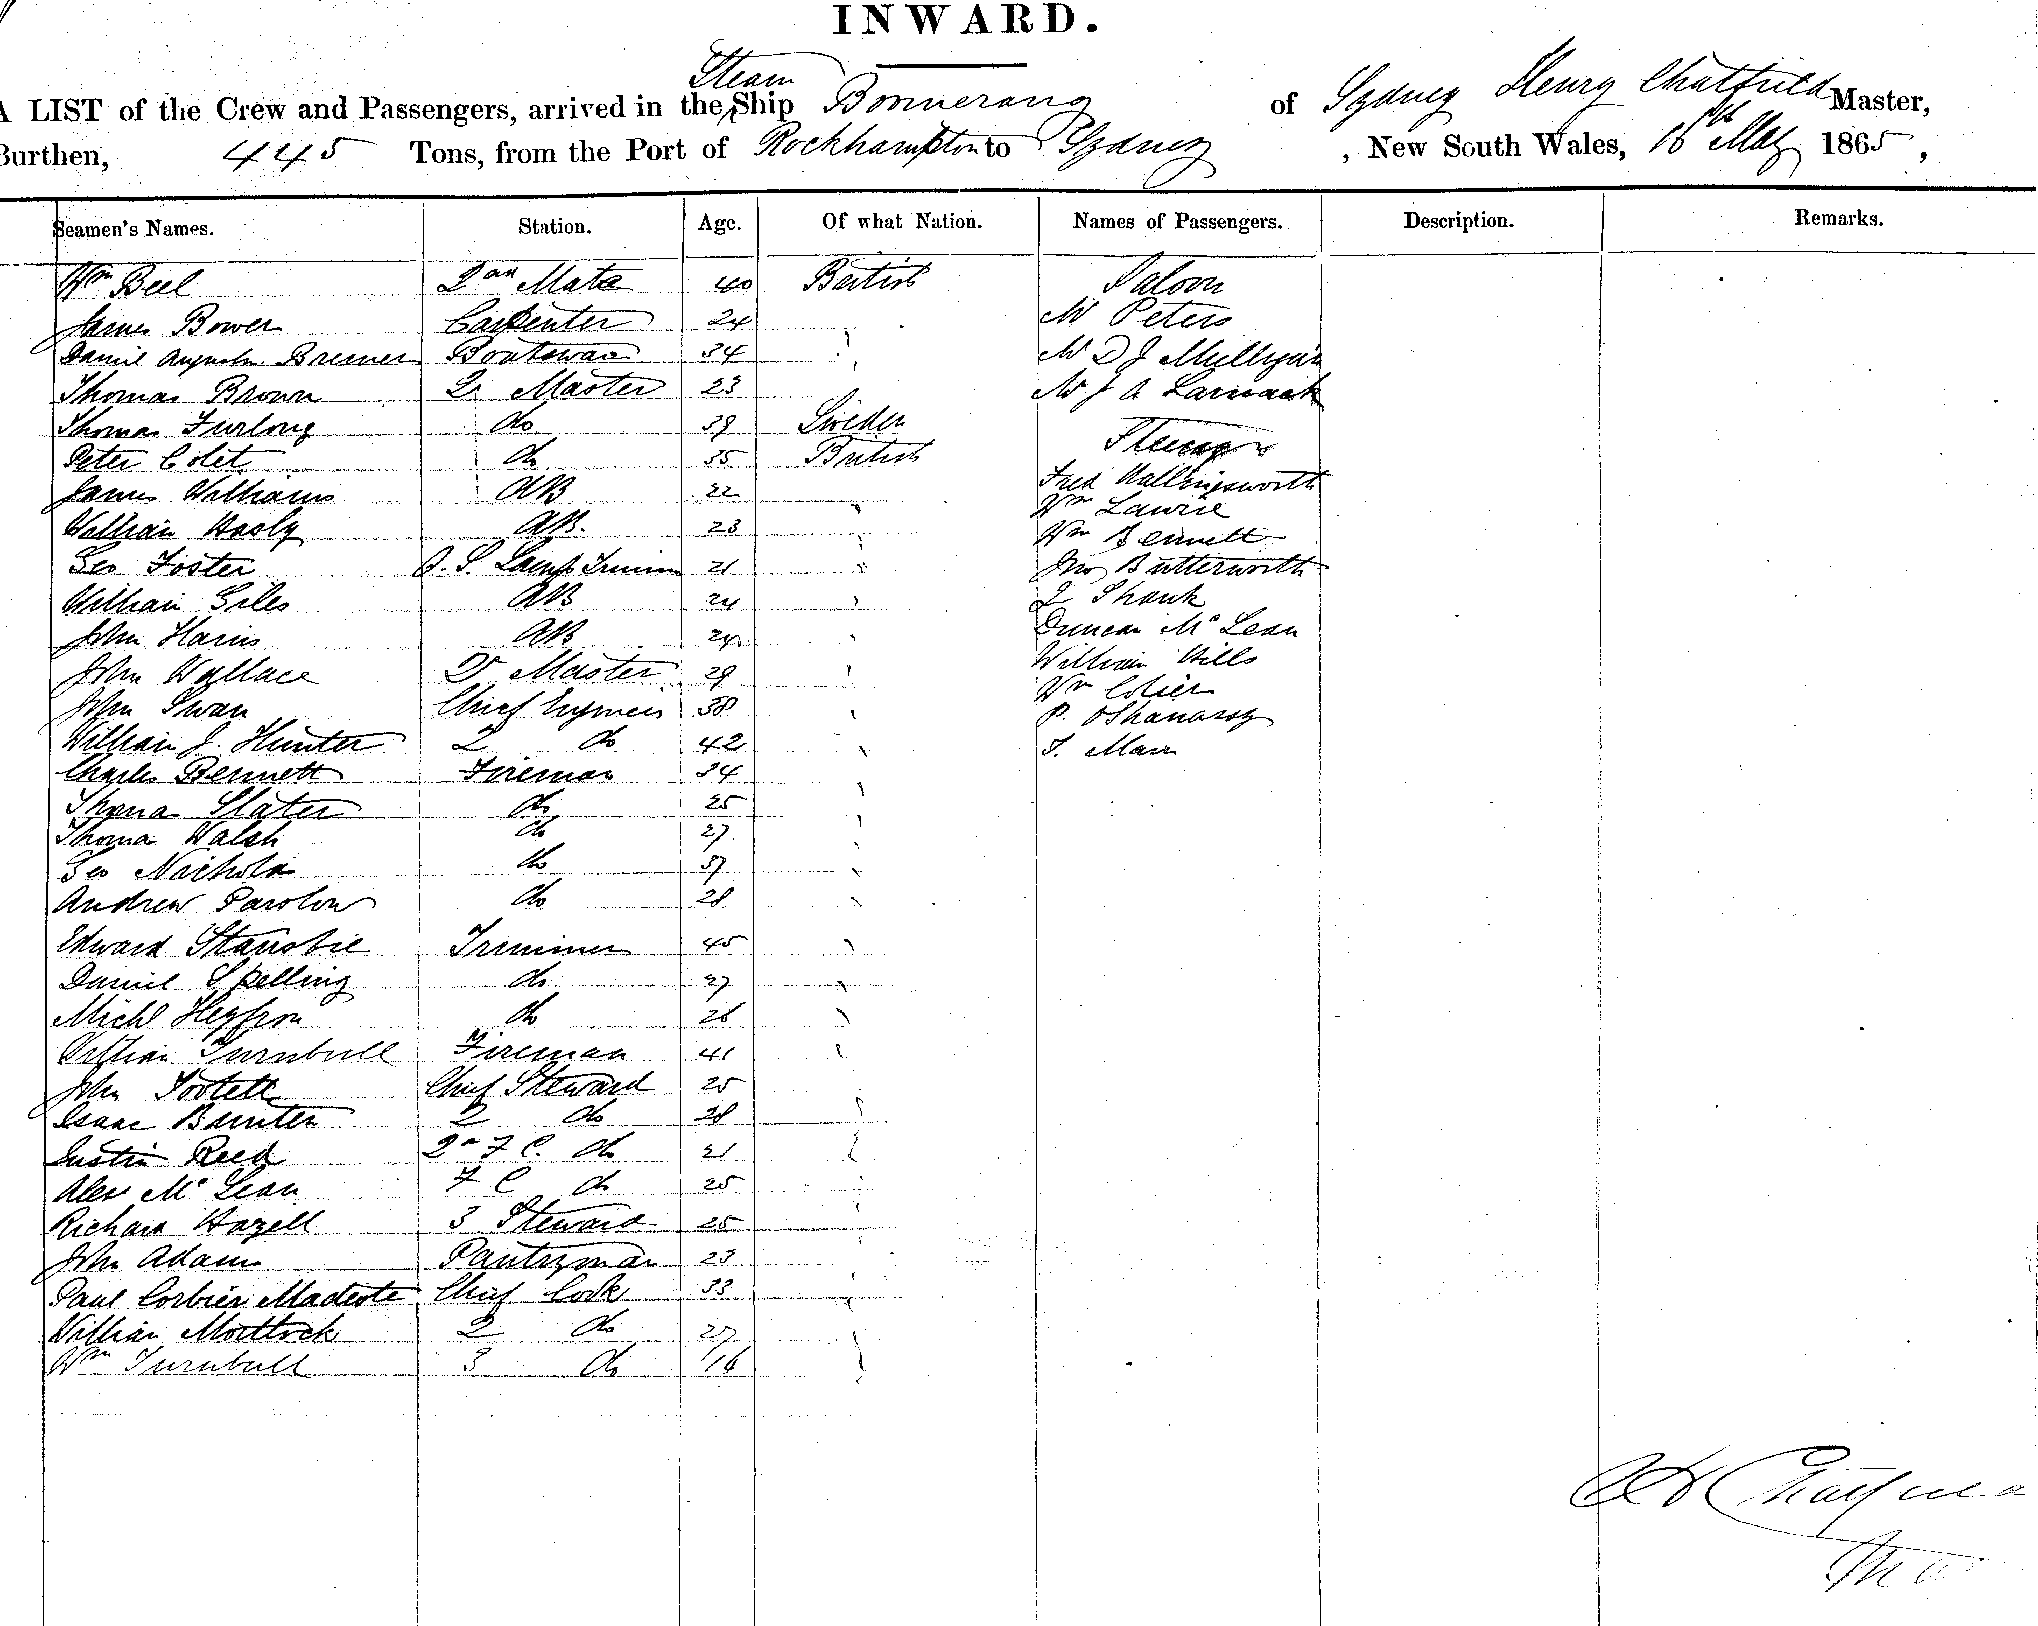 INWARD.
A LIST of the Crew and Passengers, arrived in the Steam Ship Boomerang of Sydney Henry Chatfield Master,
Burthen, 445 Tons, from the Port of Rockhampton to Sydney, New South Wales, 18th May 1865,
Seamen's Names. Station. Age. Of what Nation. Names of Passengers. Description. Remarks.
Wm Beel Mate 40 British Saloon
James Bower Carpenter 24 Mr Peters
Daniel Bremer Boatswan 34 Mr D J Mulligan
Thomas Brown Qr Master 23 Mr J A Larnack
Thomas Furlong do 39 Sweden Steerage
Peter Colet do 35 British
James Williams AB 22 Fred Hallingsworth
William AB. 23 Wm Lawrie
Geo Foster O.S. Lamp Trimmer 21 Wm Bennett
William Giles AB 24 Jno Butterworth
John Harris AB 24 J Shank
John Wallace Qr Master 29 Duncan McLean
John Swan Chief 38 William Hills
William J. Hunter 2 do 42 Wm Colier
Charles Bennett Fireman 34 P. OShanassy
Thomas Slater do 25
Thomas Walsh do 27
Geo Nichola do 37
Andrew do 28
Edward Stanobie Trimmer 45
Daniel Skelling do 27
Michl Heffron do 26
William Turnbull Fireman 41
John Chief Steward 25
Isaac 2 do 28
Justin Reed F C. do 21
Alex McLean F C do 25
Richard Hazell 3 Steward 25
John Adams Pantryman 23
Paul Corbiere Madeste Chief Cook 33
William Mortlock 2 do 27
Wm Turnbull 3 do 16